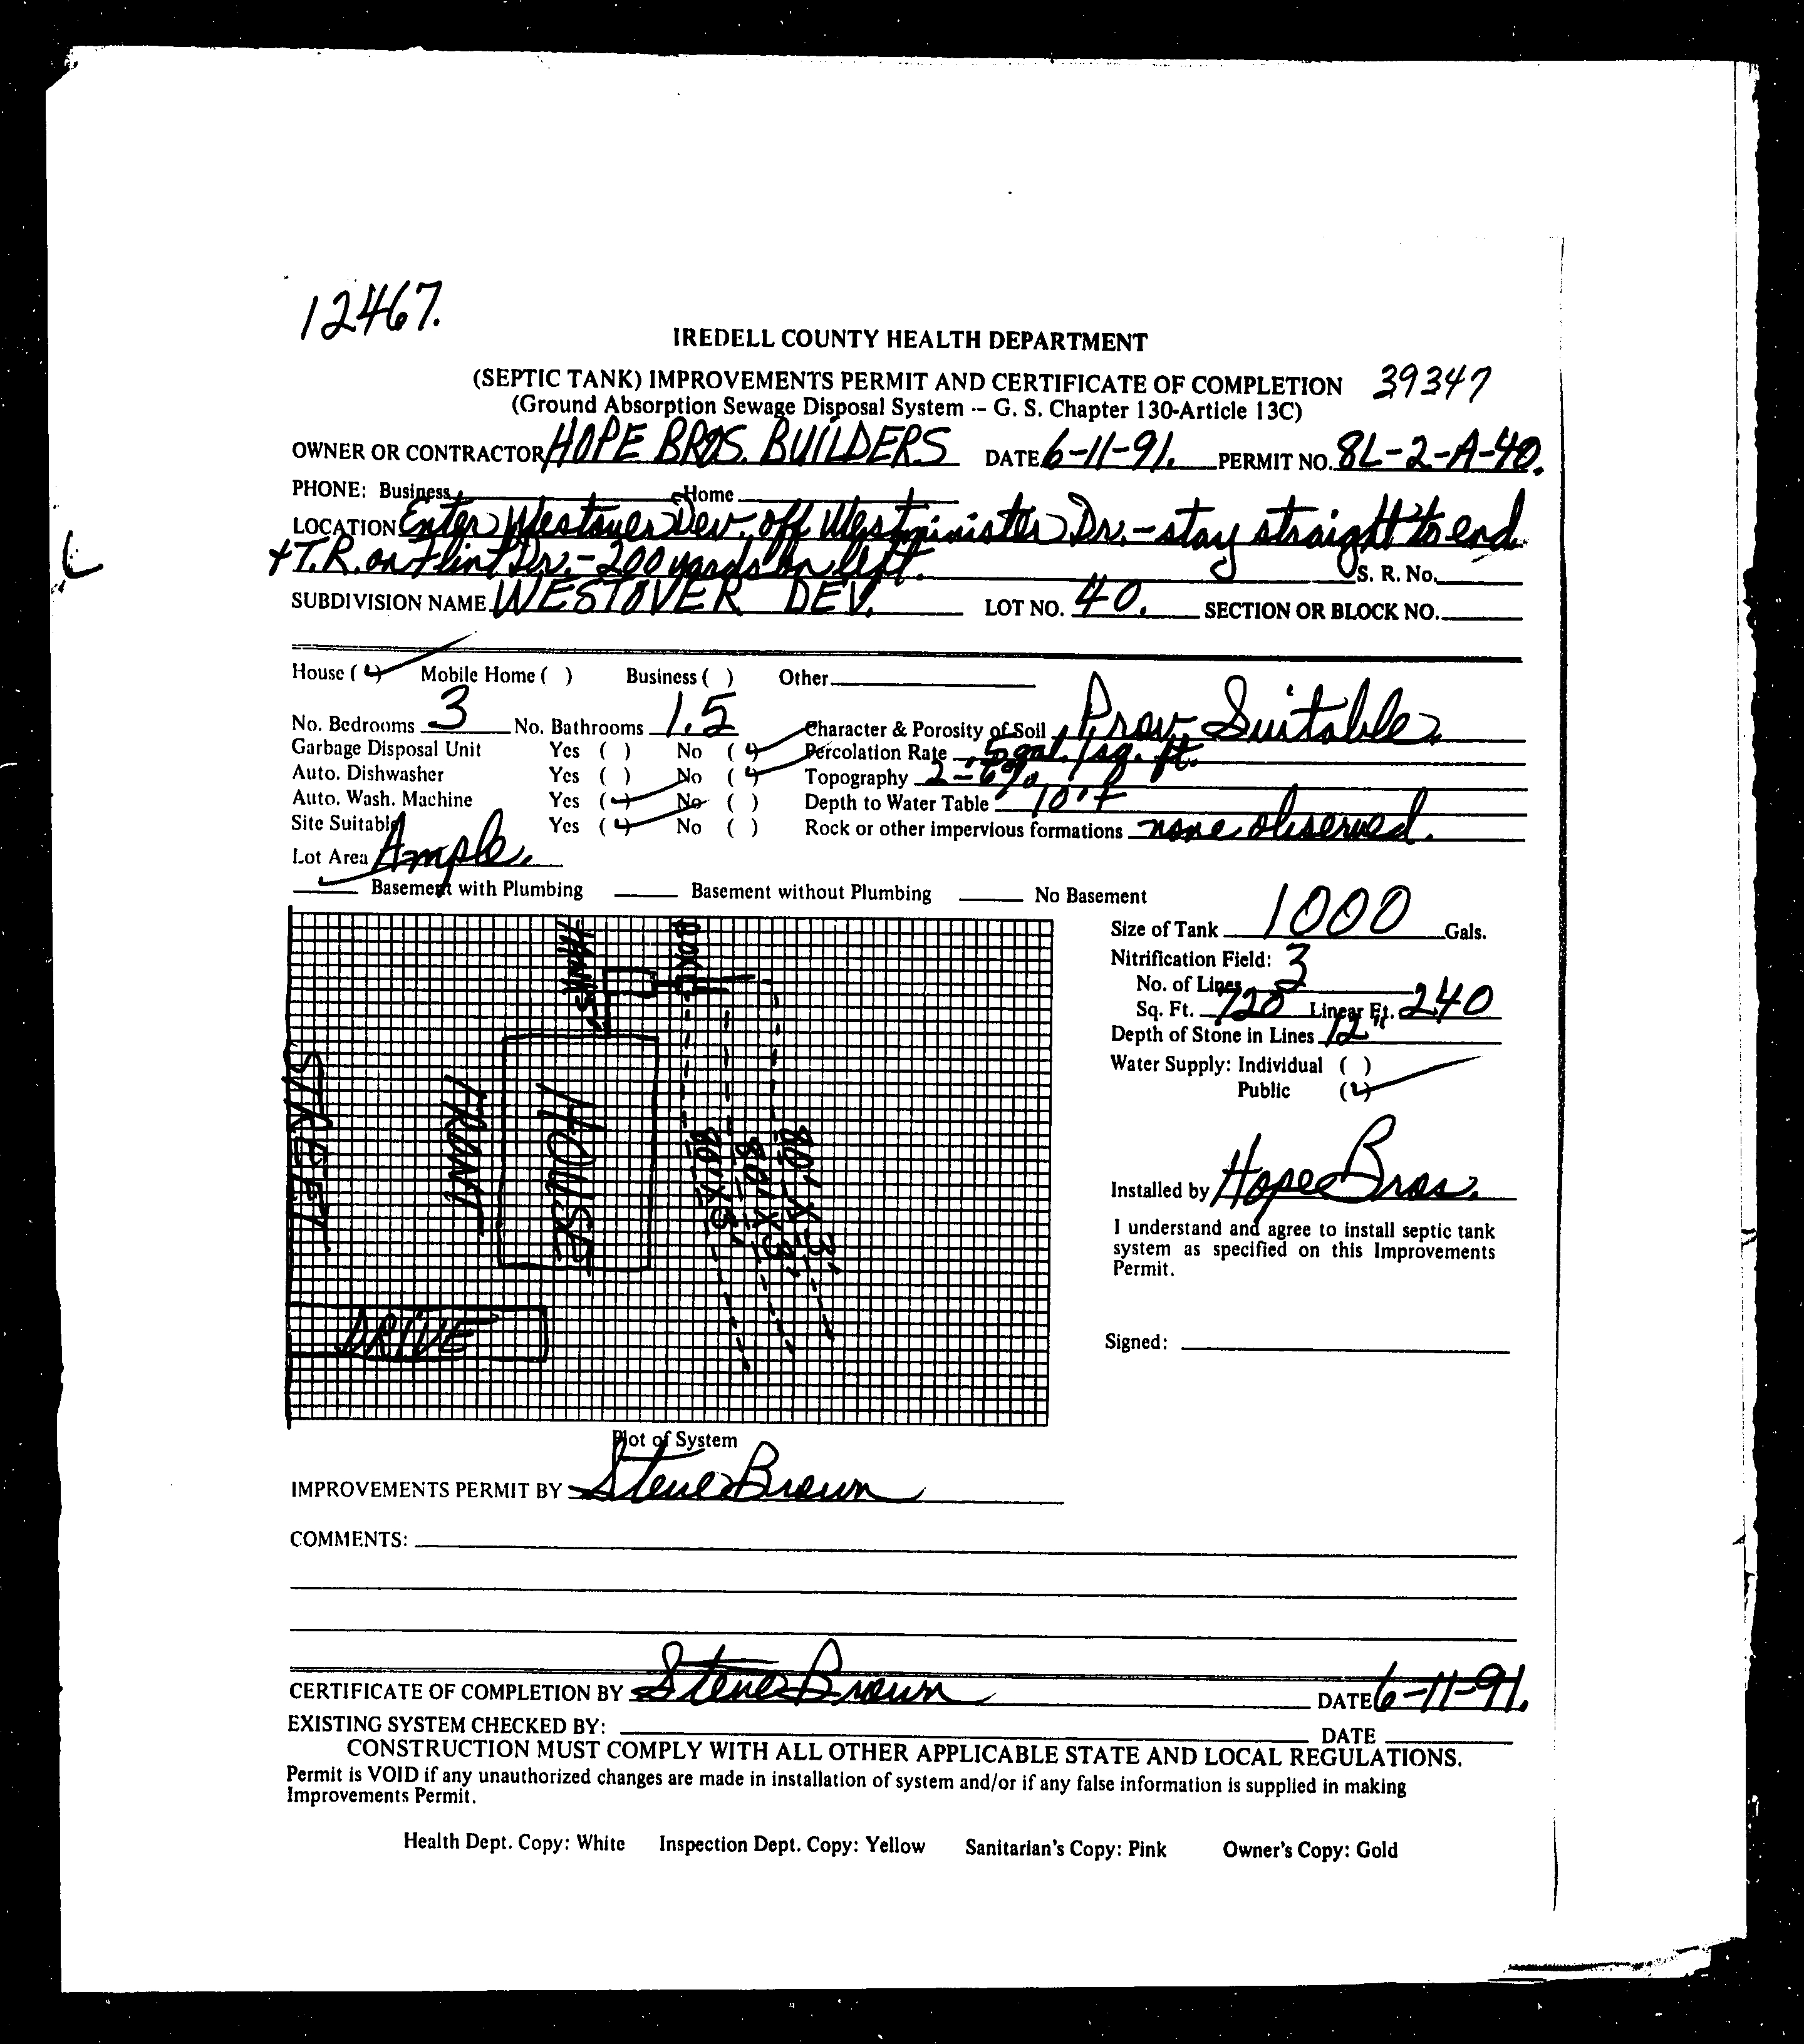 12467.
IREDELL COUNTY HEALTH DEPARTMENT
(SEPTIC TANK) IMPROVEMENTS PERMIT AND CERTIFICATE OF COMPLETION 39347
(Ground Absorption Sewage Disposal System -- G. S. Chapter 130-Article 13C)
OWNER OR CONTRACTOR HOPE BROS. BUILDERS DATE 6-11-91. PERMIT NO. 8L-2-A-40.
PHONE: Business Home
LOCATION Enter Westover Dev. off Westminister Dr. - stay straight to end
+ T.R. on Flint Dr. - 200 yards on left. S. R. No.
SUBDIVISION NAME WESTOVER DEV. LOT NO. 40. SECTION OR BLOCK NO.
House ( ) Mobile Home ( ) Business ( ) Other
No. Bedrooms 3 No. Bathrooms 1.5 Character & Porosity of Soil Prov. Suitable.
Garbage Disposal Unit Yes ( ) No ( ) Percolation Rate .5 gal. / sq. ft.
Auto. Dishwasher Yes ( ) No ( ) Topography 2-6%
Auto. Wash. Machine Yes ( ) No ( ) Depth to Water Table 10'+
Site Suitable Yes ( ) No ( ) Rock or other impervious formations none observed.
Lot Area Ample.
Basement with Plumbing Basement without Plumbing No Basement
Size of Tank 1000 Gals.
Nitrification Field:
No. of Lines 3
Sq. Ft. 720 Linear Ft. 240
Depth of Stone in Lines 12"
Water Supply: Individual ( )
Public ( )
Installed by Hope Bros.
I understand and agree to install septic tank
system as specified on this Improvements
Permit.
Signed:
TANK
BOX
STREET
FRONT
HOUSE
80' X 3'
80' X 3'
80' X 3'
DRIVE
Plot of System
IMPROVEMENTS PERMIT BY Steve Brown
COMMENTS:
CERTIFICATE OF COMPLETION BY Steve Brown DATE 6-11-91.
EXISTING SYSTEM CHECKED BY: DATE
CONSTRUCTION MUST COMPLY WITH ALL OTHER APPLICABLE STATE AND LOCAL REGULATIONS.
Permit is VOID if any unauthorized changes are made in installation of system and/or if any false information is supplied in making
Improvements Permit.
Health Dept. Copy: White Inspection Dept. Copy: Yellow Sanitarian's Copy: Pink Owner's Copy: Gold